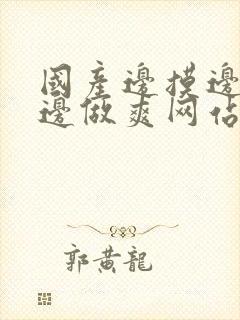 國產邊摸邊
邊做爽网佔
郭黃龍